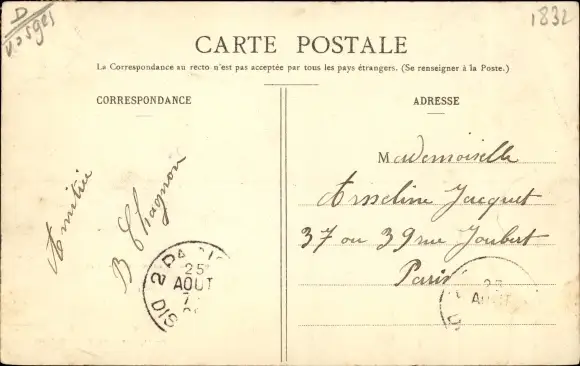 D
Vosges
1832
CARTE POSTALE
La Correspondance au recto n'est pas acceptée par tous les pays étrangers. (Se renseigner à la Poste.)
CORRESPONDANCE
Amitié
B Chagnon
2 PARIS
25
AOUT
7
DIS
ADRESSE
Mademoiselle
Asseline Jacquet
37 ou 39 rue Joubert
Paris
25
AOUT